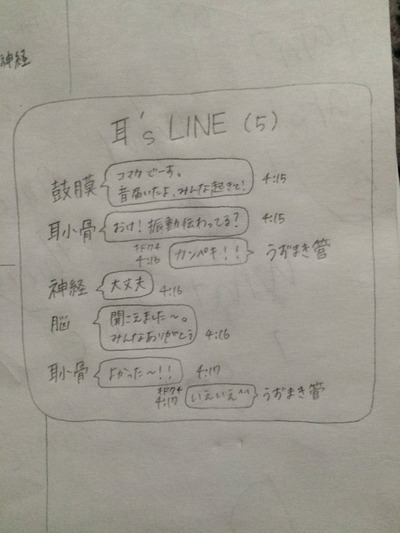 神経
耳's LINE (5)
鼓膜
コマクでーす。
音届いたよ、みんな起きて!
4:15
耳小骨
おけ! 振動伝わってる?
4:15
キドク4
4:16
カンペキ!!
うずまき管
神経
大丈夫
4:16
脳
聞こえました〜。
みんなありがとう
4:16
耳小骨
よかった〜!!
4:17
キドク4
4:17
いえいえ^^
うずまき管